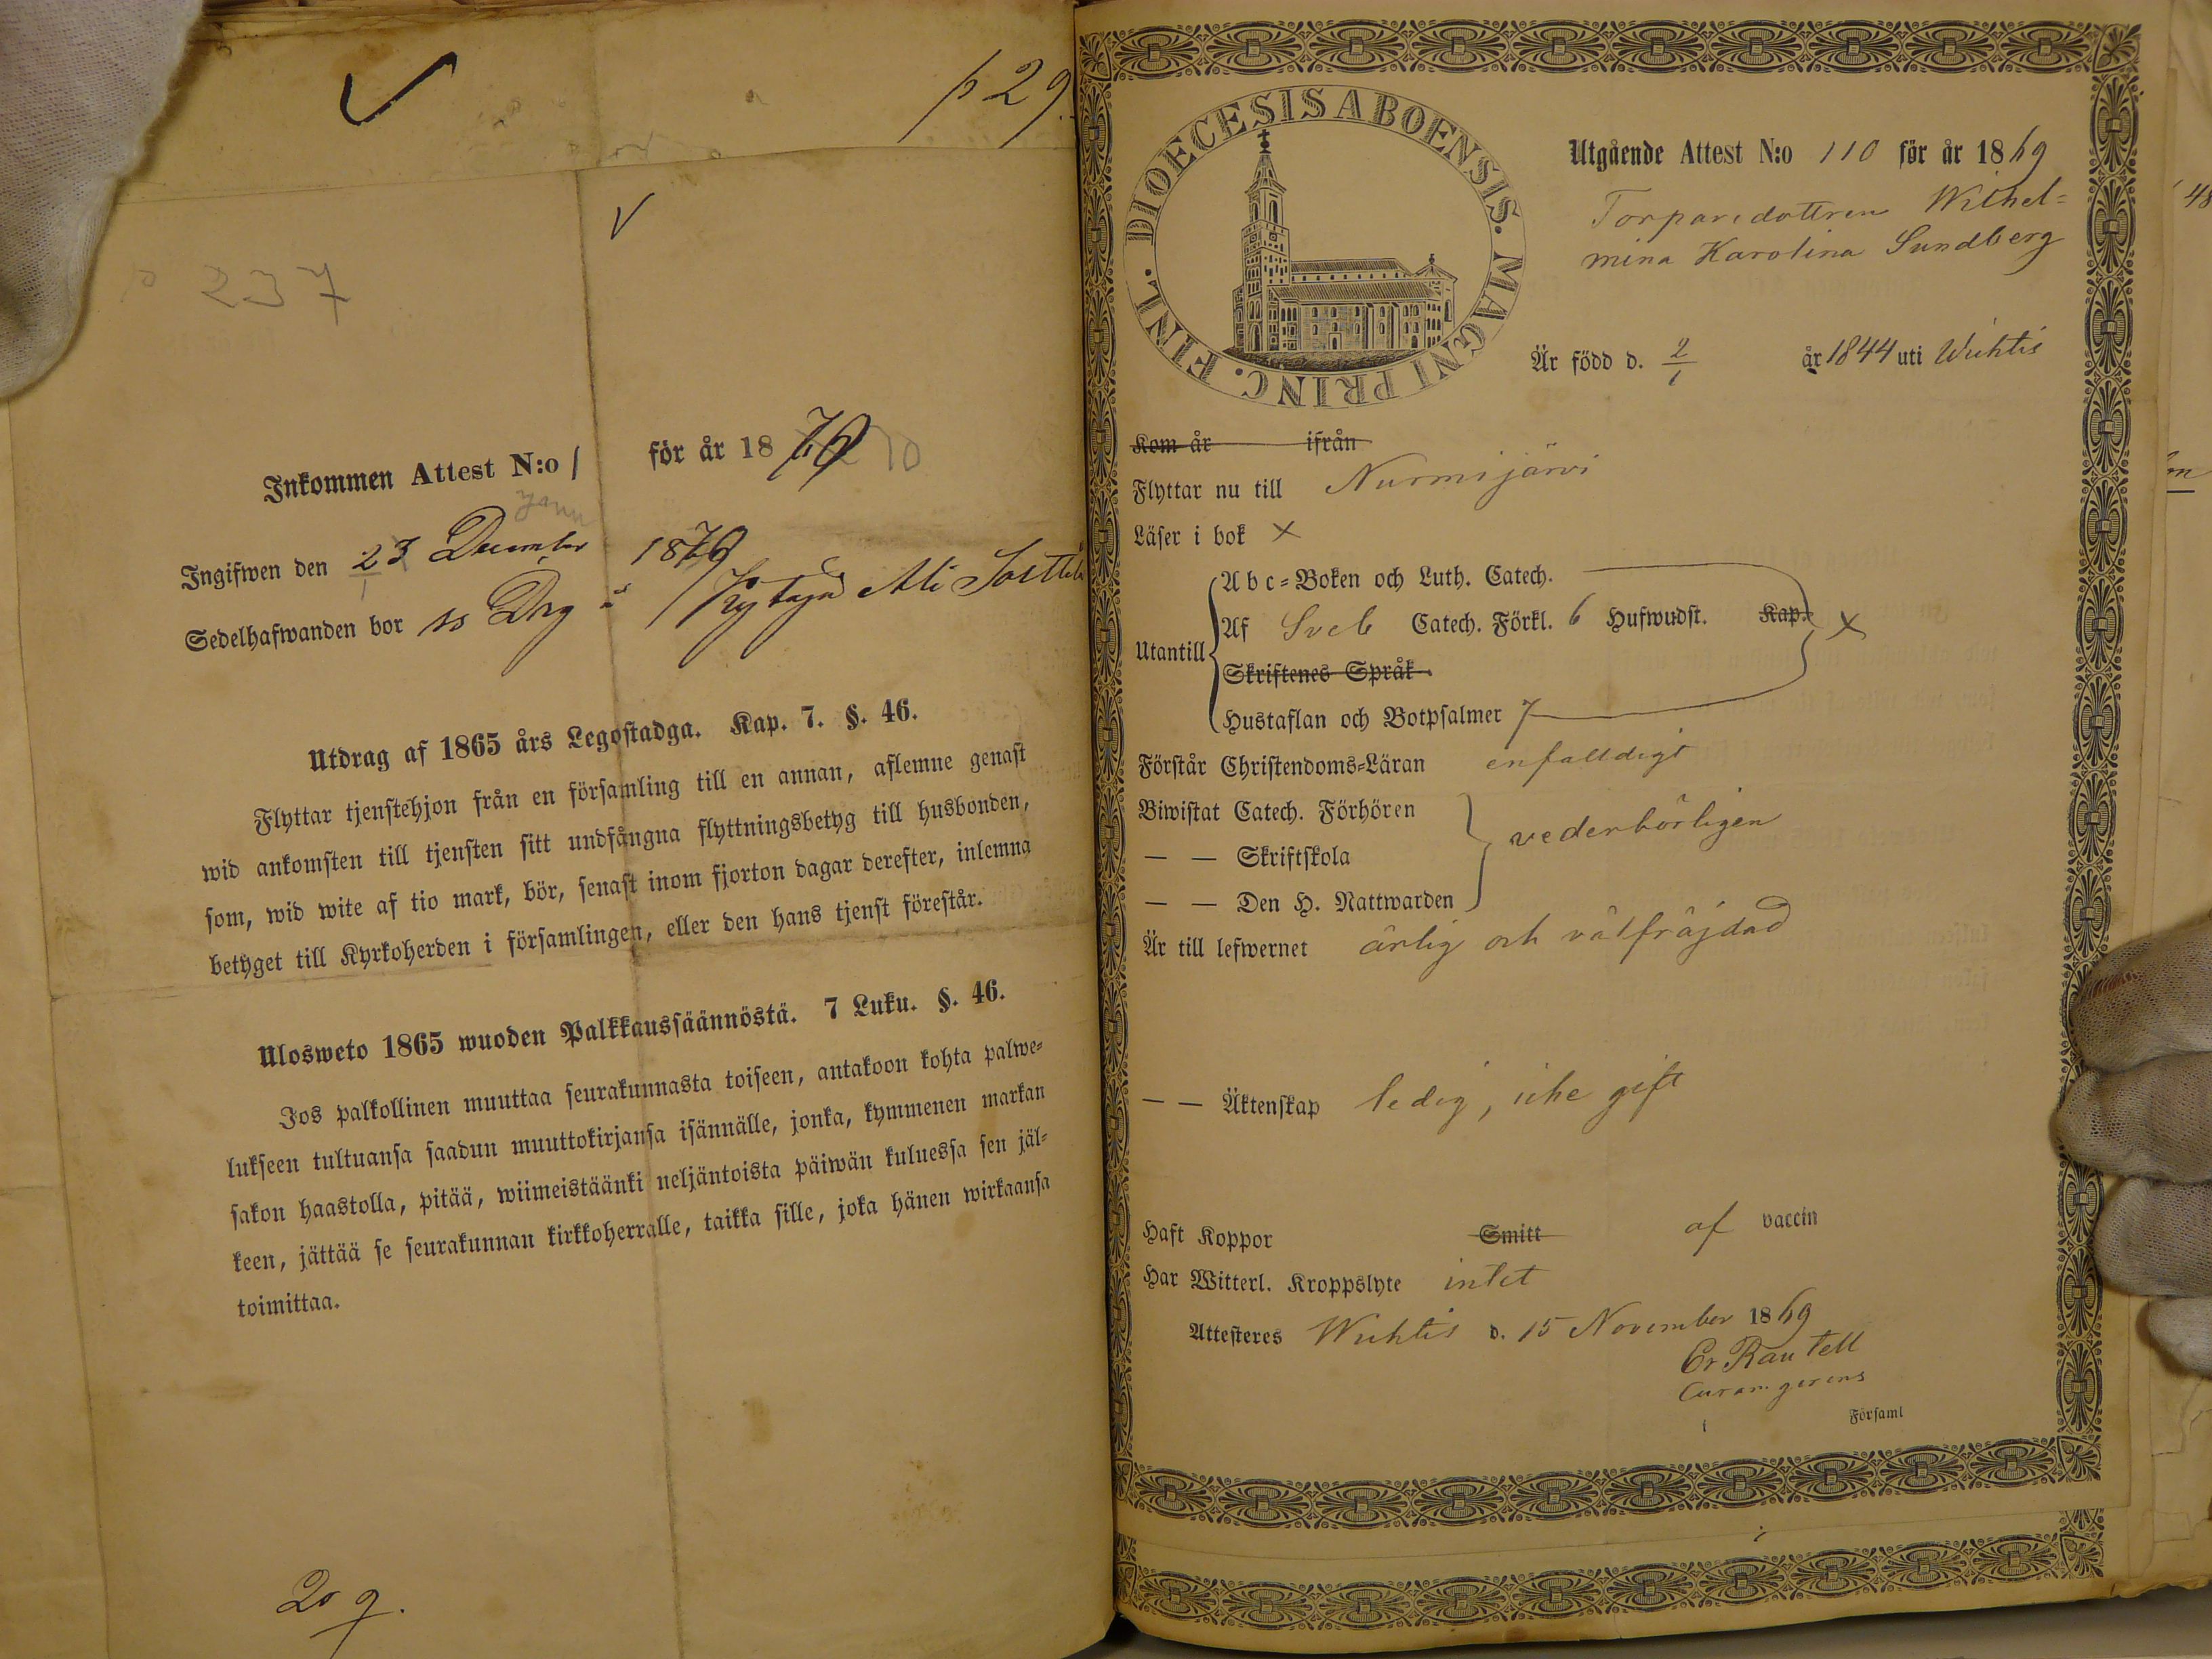 p 29.
p 237
Inkommen Attest N:o 1 för år 1870
Ingifwen den 23 December 1870
Janu
Sedelhafwanden bor ss Drg å Kytäjä Ali
Utdrag af 1865 års Legostadga. Kap. 7. §. 46.
Flyttar tjenstehjon från en församling till en annan, aflemne genast
wid ankomsten till tjensten sitt undfångna flyttningsbetyg till husbonden,
som, wid wite af tio mark, bör, senast inom fjorton dagar derefter, inlemna
betyget till Kyrkoherden i församlingen, eller den hans tjenst förestår.
Ulosweto 1865 wuoden Palkkaussäännöstä. 7 Luku. §. 46.
Jos palkollinen muuttaa seurakunnasta toiseen, antakoon kohta palwe-
lukseen tultuansa saadun muuttokirjansa isännälle, jonka, kymmenen markan
sakon haastolla, pitää, wiimeistäänki neljäntoista päiwän kuluessa sen jäl-
keen, jättää se seurakunnan kirkkoherralle, taikka sille, joka hänen wirkaansa
toimittaa.
DIOECESIS ABOENSIS. MAGNI PRINC. FINL.
Utgående Attest N:o 110 för år 1869
Torparedottren Wilhel-
mina Karolina Sundberg
Är född d. 2/1 år 1844 uti Wichtis
Kom år ifrån
Flyttar nu till Nurmijärvi
Läser i bok x
Utantill
Abc-Boken och Luth. Catech.
Af Sveb Catech. Förkl. 6 Hufwudst. Kap. x
Skriftenes Språk
Hustaflan och Botpsalmer 7
Förstår Christendoms-Läran enfalldigt
Biwistat Catech. Förhören
— — Skriftskola vederbörligen
— — Den H. Nattwarden
Är till lefwernet ärlig och välfräjdad
— — Äktenskap ledig, icke gift
Haft Koppor Smitt af vaccin
Har Witterl. Kroppslyte intet
Attesteras Wichtis d. 15 November 1869
Er Rautell
Curam gerens
i Församl
48